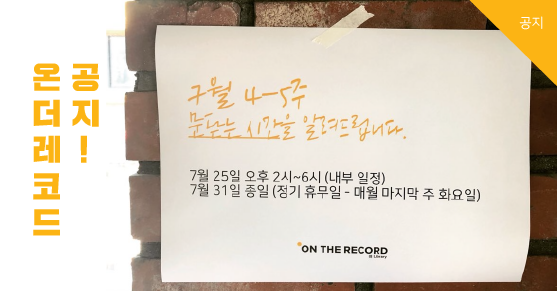 공지
공지!
온더레코드
구월 4-5주
문닫는 시간을 알려드립니다.
7월 25일 오후 2시~6시 (내부 일정)
7월 31일 종일 (정기 휴무일 - 매월 마지막 주 화요일)
ON THE RECORD
@ Library